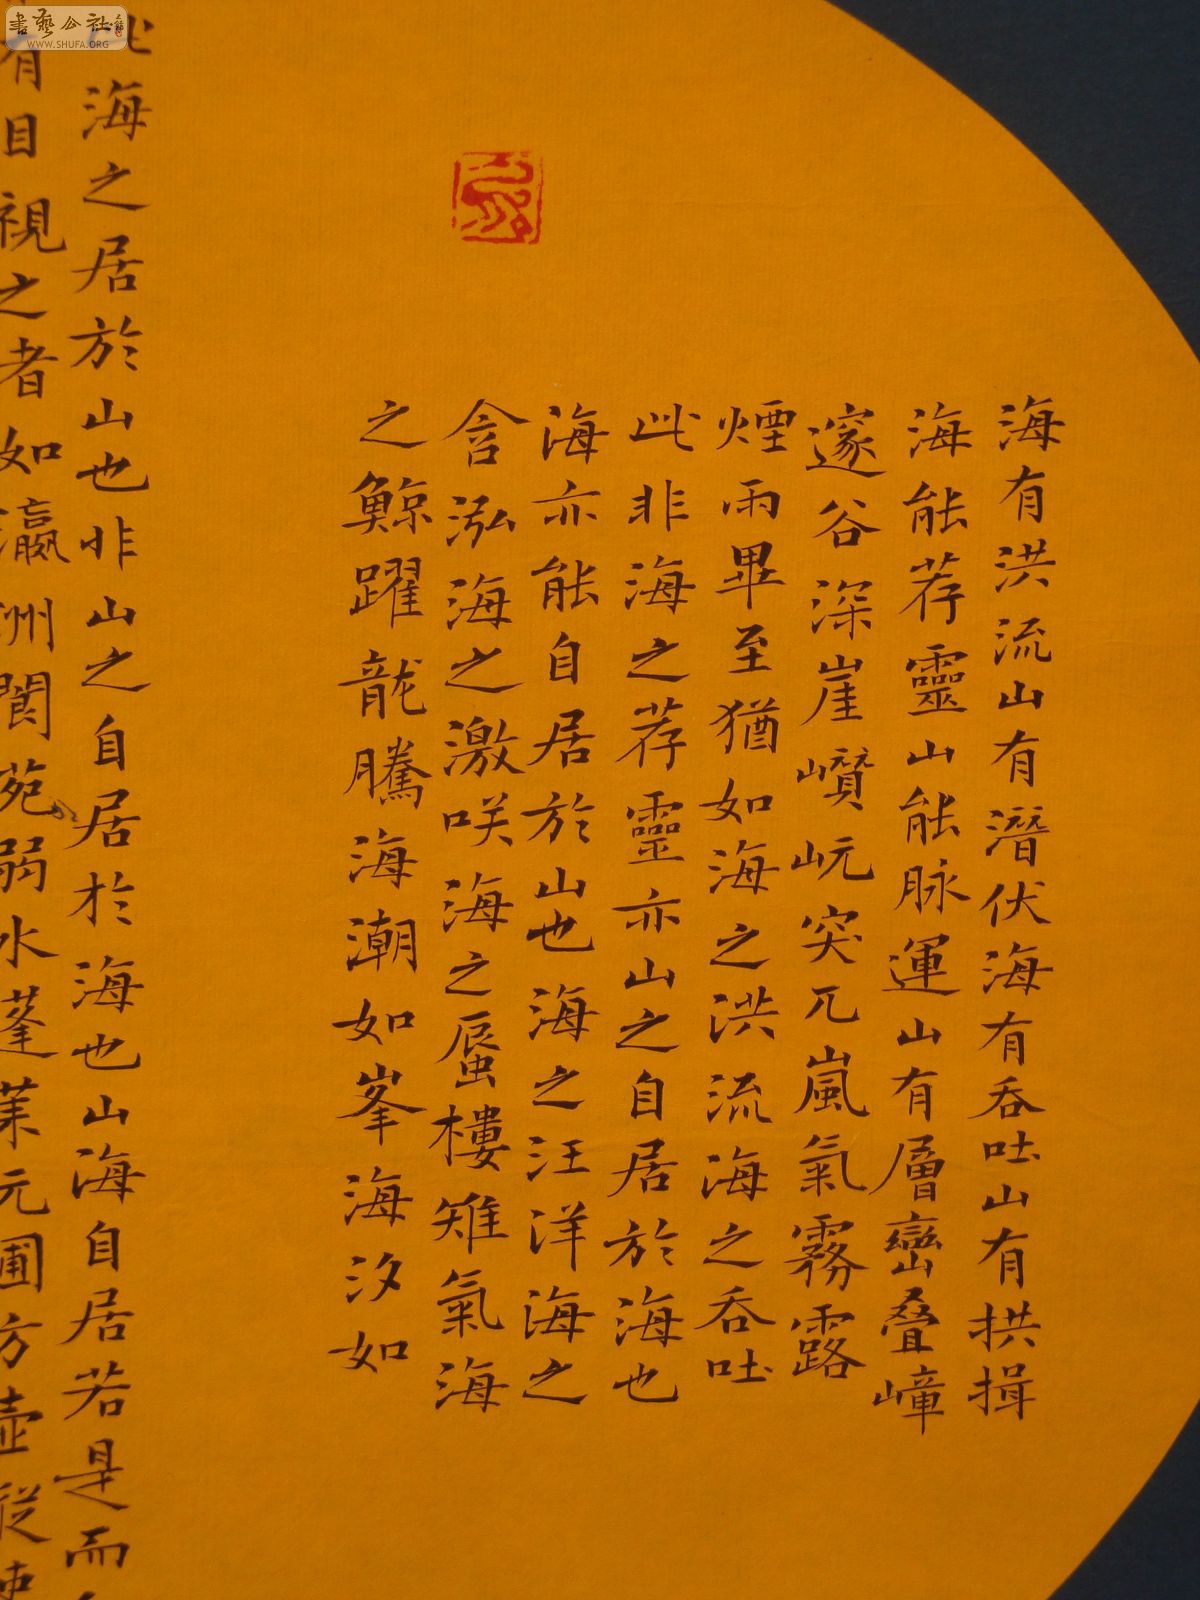 海有洪流山有潛伏海有吞吐山有拱揖
海能荐靈山能脉運山有層巒叠嶂
邃谷深崖巑岏突兀嵐氣霧露
煙雨畢至猶如海之洪流海之吞吐
此非海之荐靈亦山之自居於海也
海亦能自居於山也海之汪洋海之
含泓海之激咲海之蜃樓雉氣海
之鯨躍龍騰海潮如峯海汐如
海之居於山也非山之自居於海也山海自居若是而
有目視之者如瀛洲閬苑弱水蓬萊元圃方壺縱使
書藝公社
WWW.SHUFA.ORG